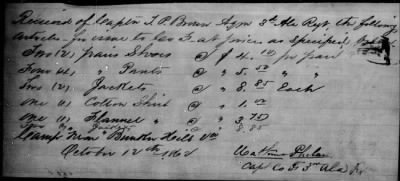 Received of Captn T. P. Brown Aqm 3rd Ala Rgt the following
articles for issue to Co F. at prices as specified
Two (2) pairs Shoes @ $4.00 pr pair
Four (4) " Pants @ 5.50 " "
Two (2) Jackets @ 8.85 Each
One (1) Cotton Shirt @ 1.00
One (1) Flannel " @ 3.75
8.85
Camp Near Bunker Hill Va
October 12th 1862 Watkins Phelan
Cap Co F 3rd Ala